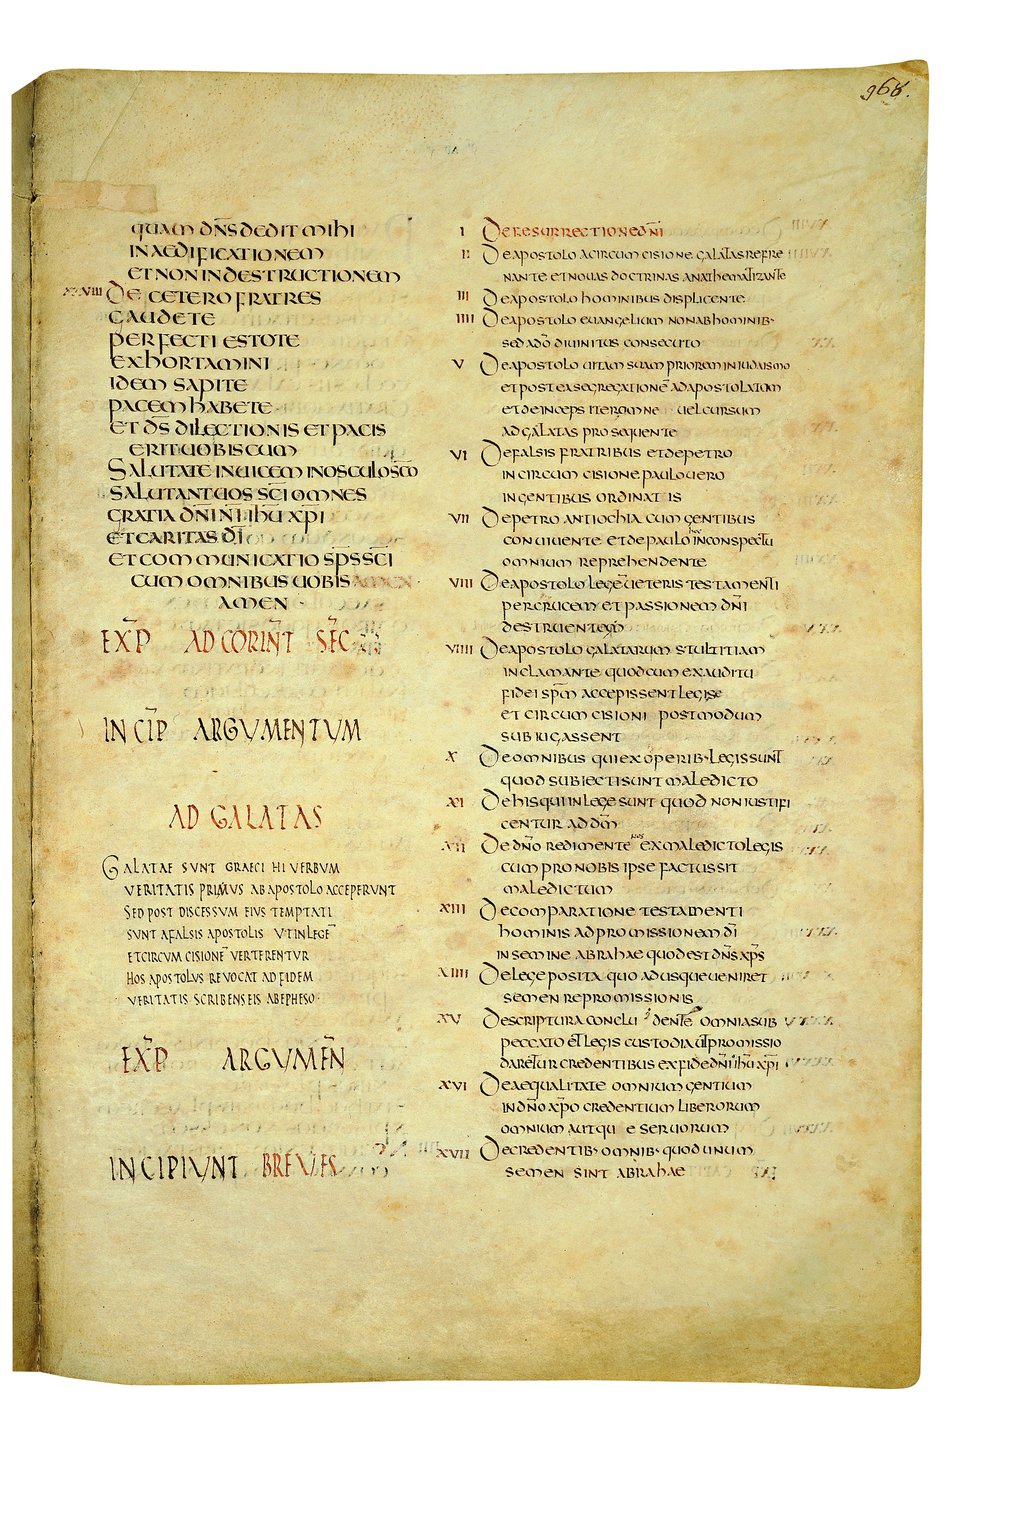 968.
quam dn̄s dedit mihi
in aedificationem
et non in destructionem
De cetero fratres
gaudete
perfecti estote
exhortamini
idem sapite
pacem habete
et ds̄ dilectionis et pacis
erit uobiscum
Salutate inuicem in osculo sc̄o
salutant uos sc̄i omnes
gratia dn̄i n̄i ihū xp̄i
et caritas dī
et communicatio sps̄ sc̄i
cum omnibus uobis
amen
EXP̄ AD CORINT̄ SEC̄
INCIP̄ ARGVMENTVM
AD GALATAS
GALATAE SVNT GRAECI HI VERBVM
VERITATIS PRIMVS AB APOSTOLO ACCEPERVNT
SED POST DISCESSVM EIVS TEMPTATI
SVNT A FALSIS APOSTOLIS VT IN LEGĒ
ET CIRCVMCISIONĒ VERTERENTVR
HOS APOSTOLVS REVOCAT AD FIDEM
VERITATIS SCRIBENS EIS AB EPHESO
EXP̄ ARGVMEN̄
INCIPIVNT BREVES
I De resurrectione dn̄i
II De apostolo a circumcisione galatas refre
nante et nouas doctrinas anathematizante
III De apostolo hominibus displicente
IIII De apostolo euangelium non ab hominib·
sed a dō diuinitus consecuto
V De apostolo uitam suam priorem in iudaismo
et post ea segregationē ad apostolatum
et deinceps itergmne uel cursum
ad galatas prosequente
VI De falsis fratribus et de petro
in circumcisione paulo uero
in gentibus ordinatis
VII De petro antiochia cum gentibus
conuiuente et de paulo in conspectu
omnium reprehendente
VIII De apostolo legē ueteris testamenti
per crucem et passionem dn̄i
destruente
VIIII De apostolo galatarum stultitiam
inclamante quod cum exauditu
fidei spm̄ accepissent legis se
et circumcisioni postmodum
subiugassent
X De omnibus qui ex operib· legis sunt
quod subiecti sunt maledicto
XI De his qui in lege sunt quod non iustifi
centur ad dm̄
XII De dn̄o redimente nos ex maledicto legis
cum pro nobis ipse factus sit
maledictum
XIII De comparatione testamenti
hominis ad promissionem dī
in semine abrahae quod est dn̄s xp̄s
XIIII De lege posita quo adusque ueniret
semen repromissionis
XV De scriptura concludente omnia sub
peccato et legis custodia ut promissio
daretur credentibus ex fide dn̄i ihū xp̄i
XVI De aequalitate omnium gentium
in dn̄o xp̄o credentium liberorum
omnium atqu e seruorum
XVII De credentib· omnib· quod unum
semen sint abrahae